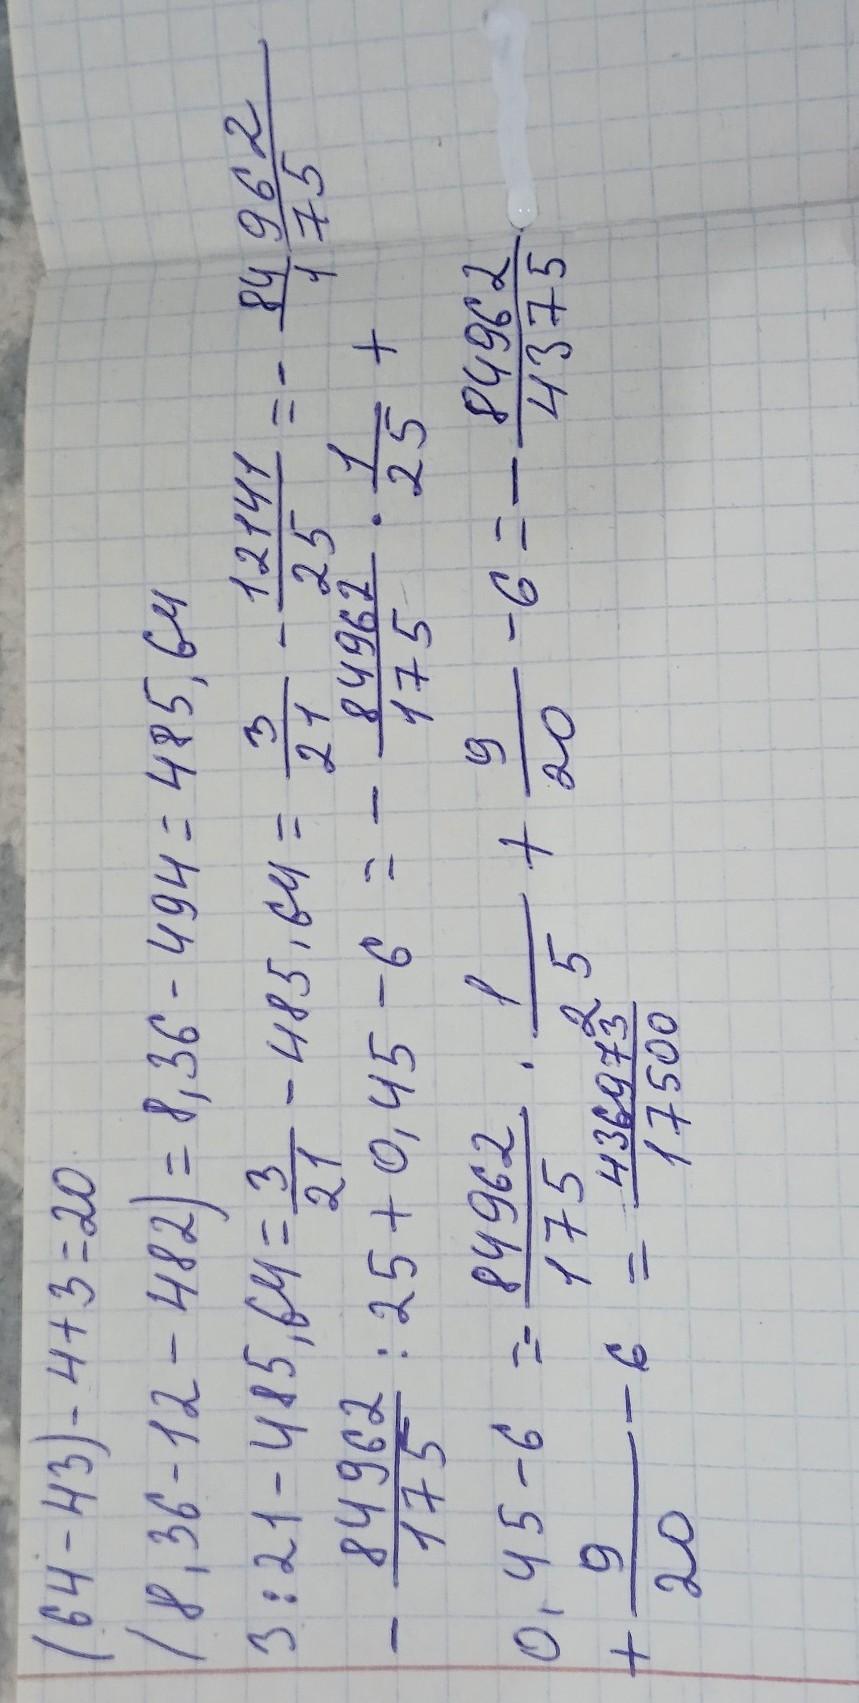 (64-43)-4+3=20
(8,36-12-482)=8,36-494=485,64
3:21-485,64=3/21-485,64=3/21-12141/25=-84962/175
-84962/175:25+0,45-6=-84962/175·1/25+
0,45-6=84962/175·1/25+9/20-6=-84962/4375
+9/20-6=436973/17500